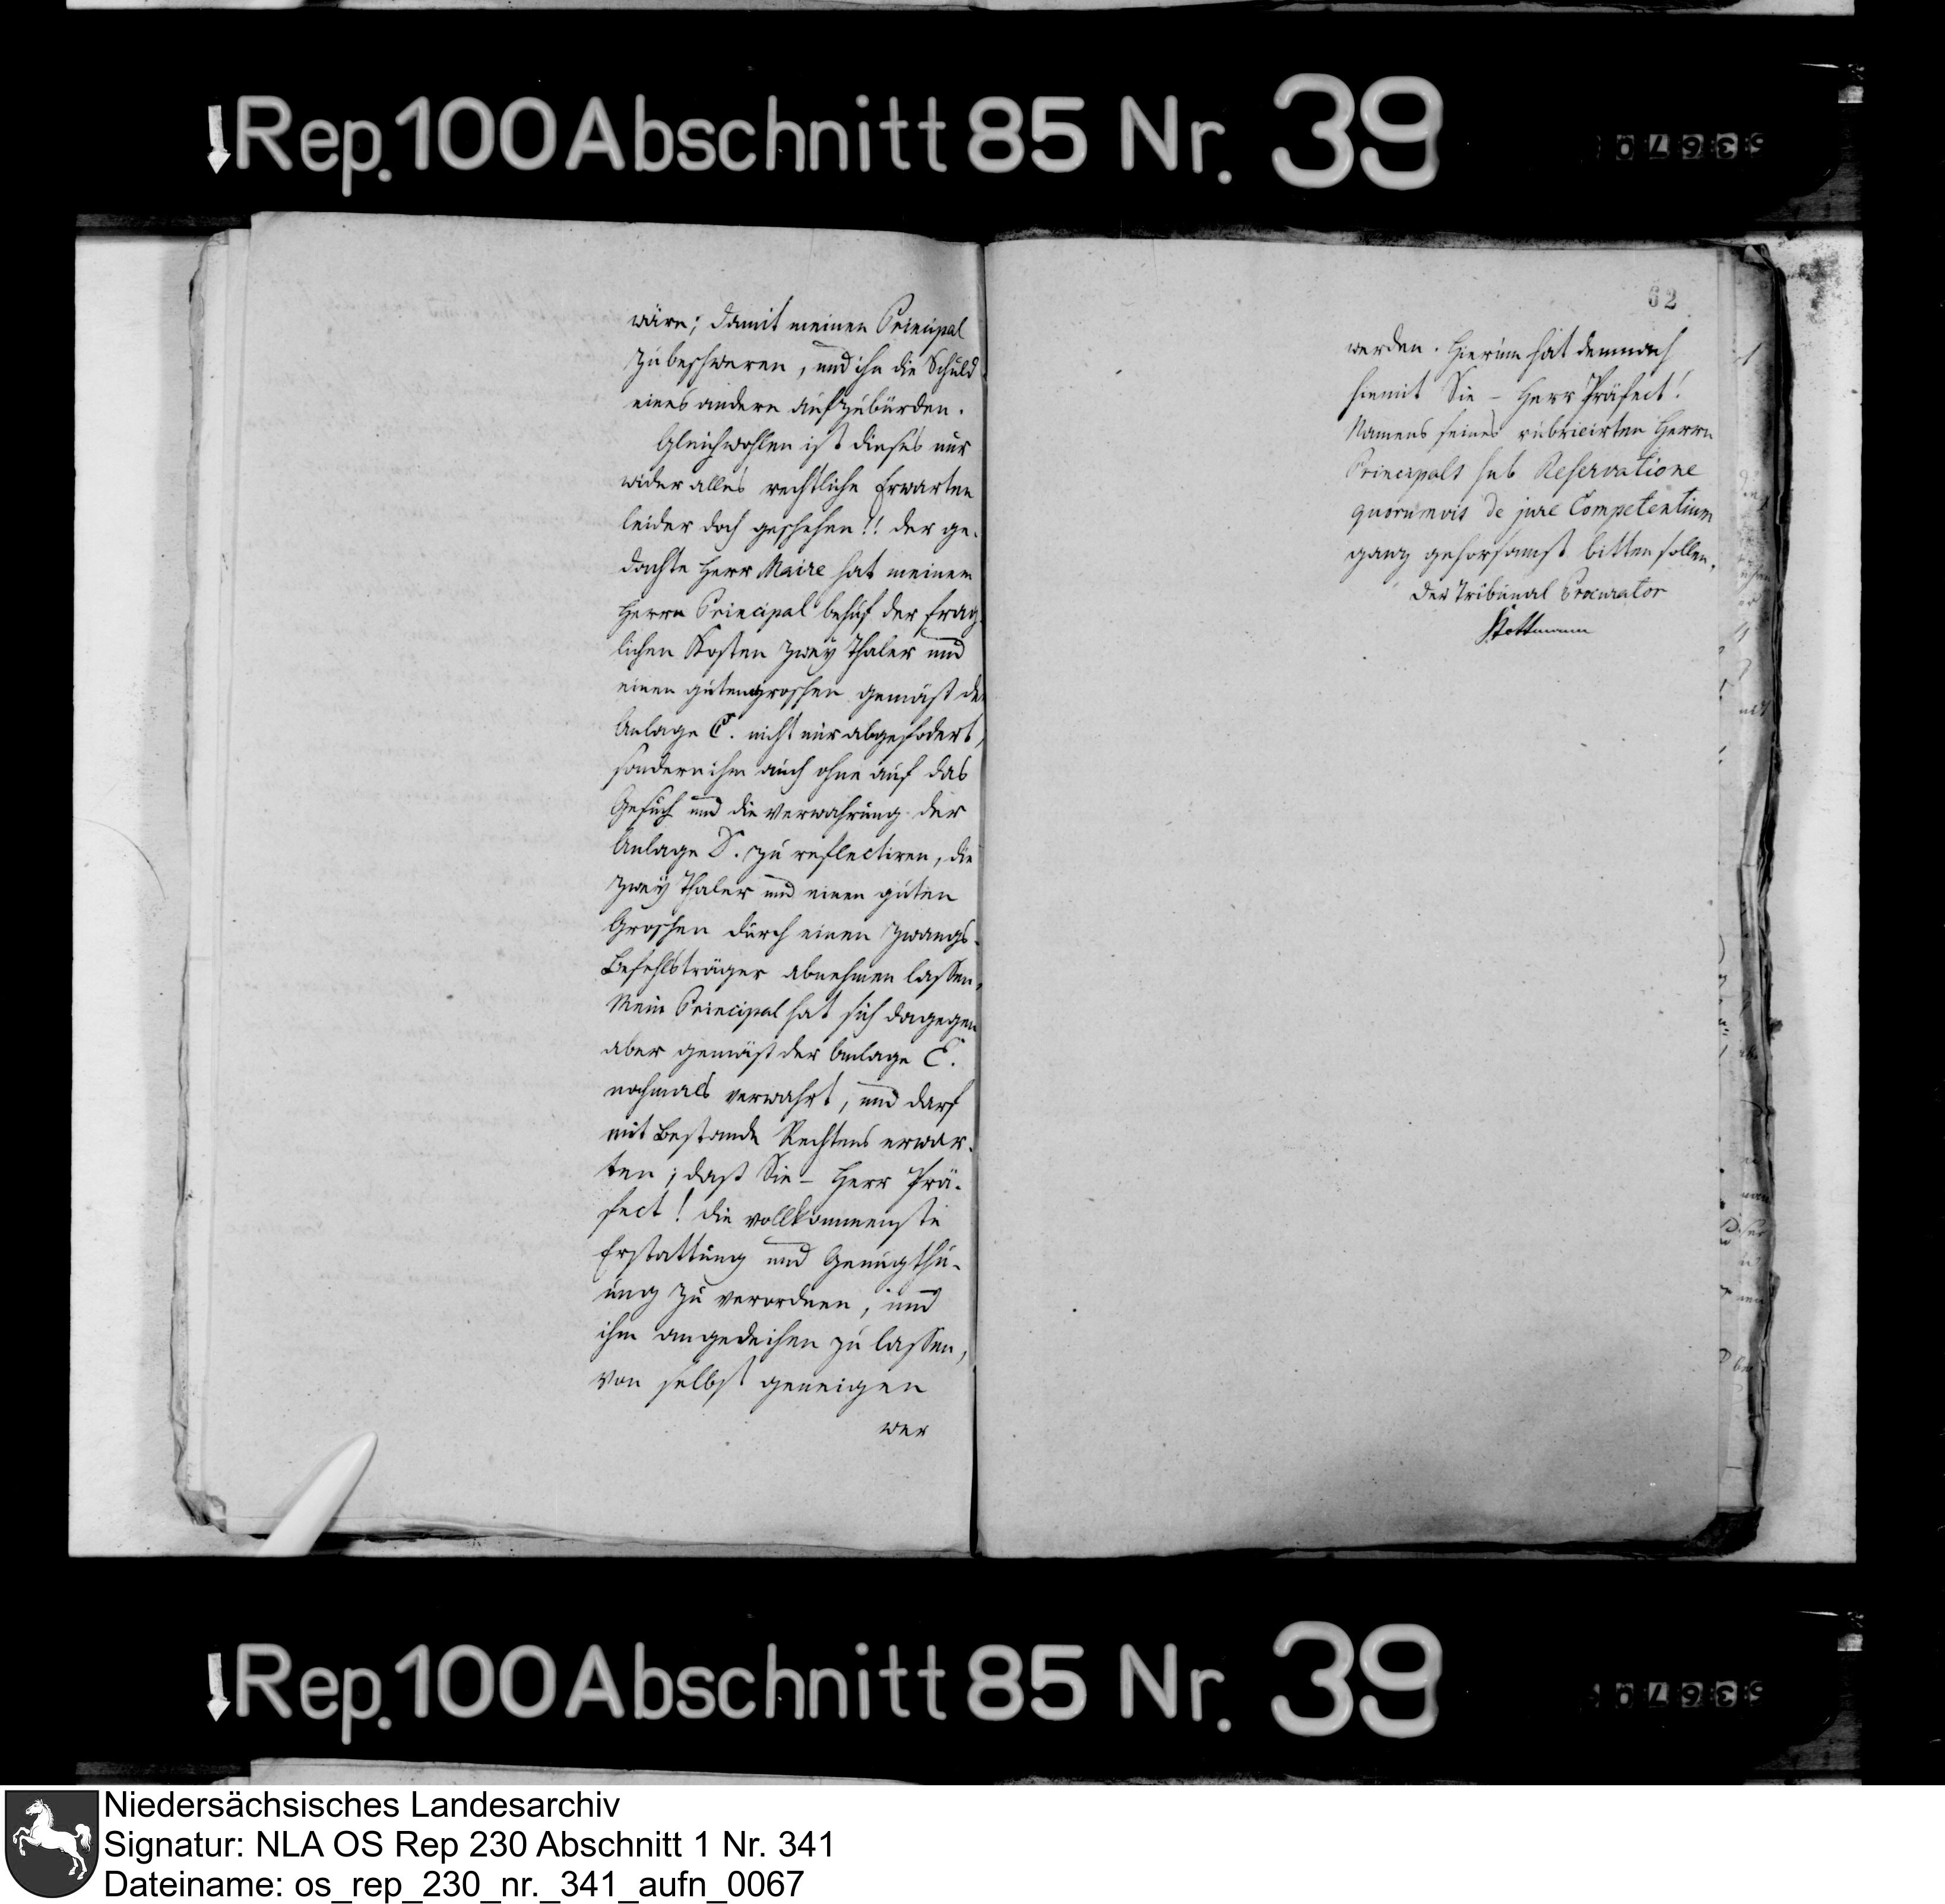 Rep. 100 Abschnitt 85 Nr. 39
wäre; damit meinen Principal
zu beschweren, und ihn die Schuld
eines andern aufzubürden.
Gleichwohlen ist dieses nur
wider alles rechtliche Erwarten
leider doch geschehen!! der ge-
dachte Herr Maire hat meinem
Herrn Principal behuf der frag-
lichen Kosten zwey Thaler und
einen gutengroschen gemäß der
Anlage C. nicht nur abgefodert,
sondern ihm auch ohne auf das
Gesuch und die Verwahrung der
Anlage D. zu reflectiren, die
zwey Thaler und einen guten
Groschen durch einen Zwangs-
Befehlsträger abnehmen lassen,
Mein Principal hat sich dagegen
aber gemäß der Anlage E.
nochmals verwahrt, und darf
mit Bestande Rechtens erwar-
ten; daß Sie - Herr Prä-
fect! die vollkommenste
Erstattung und Genugthu-
ung zu verordnen, und
ihm angedeihen zu lassen,
von selbst geneigen
wer
62
werden. Hierum hat demnach
hiemit Sie - Herr Präfect!
Namens seines rubricirten Herrn
Principals sub Reservatione
quorumvis de jure Competentium
ganz gehorsamst bitten sollen.
Der Tribunal Procurator
Rep. 100 Abschnitt 85 Nr. 39
Niedersächsisches Landesarchiv
Signatur: NLA OS Rep 230 Abschnitt 1 Nr. 341
Dateiname: os_rep_230_nr._341_aufn_0067